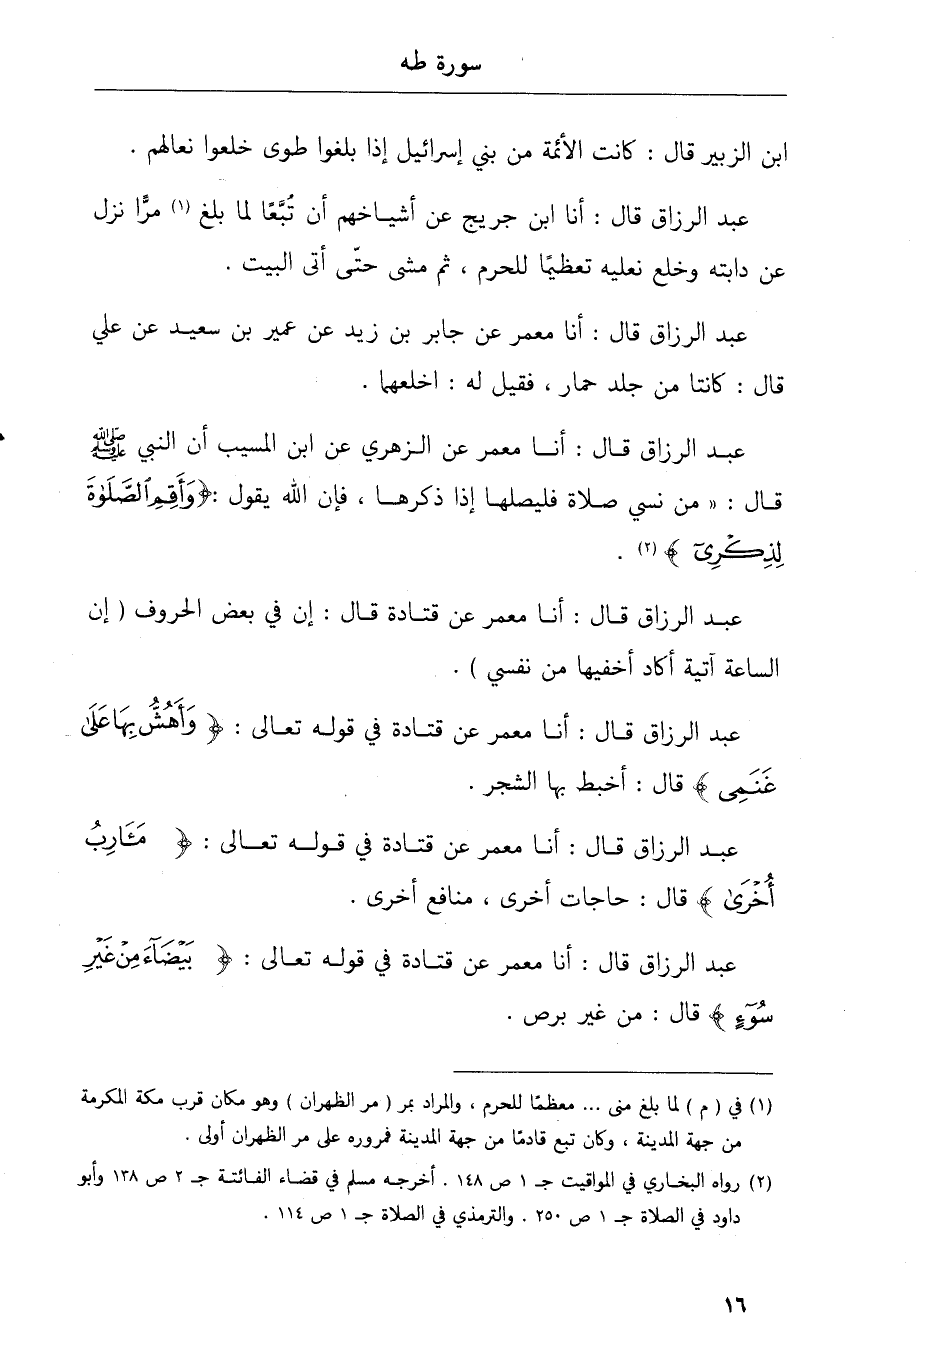 سورة طه
ابن الزبير قال : كانت الأئمة من بني إسرائيل إذا بلغوا طوى خلعوا نعالهم .
عبد الرزاق قال : أنا ابن جريج عن أشياخهم أن تُبَّعًا لما بلغ (١) مرًّا نزل
عن دابته وخلع نعليه تعظيمًا للحرم ، ثم مشى حتّى أتى البيت .
عبد الرزاق قال : أنا معمر عن جابر بن زيد عن عمير بن سعيد عن علي
قال : كانتا من جلد حمار ، فقيل له : اخلعهما .
عبد الرزاق قال : أنا معمر عن الزهري عن ابن المسيب أن النبي ﷺ
قال : « من نسي صلاة فليصلها إذا ذكرها ، فإن الله يقول :﴿وَأَقِمِ ٱلصَّلَوٰةَ
لِذِكْرِىٓ ﴾ (٢) .
عبد الرزاق قال : أنا معمر عن قتادة قال : إن في بعض الحروف ( إن
الساعة آتية أكاد أخفيها من نفسي ) .
عبد الرزاق قال : أنا معمر عن قتادة في قوله تعالى : ﴿ وَأَهُشُّ بِهَا عَلَىٰ
غَنَمِى ﴾ قال : أخبط بها الشجر .
عبد الرزاق قال : أنا معمر عن قتادة في قوله تعالى : ﴿ مَـَٔارِبُ
أُخْرَىٰ ﴾ قال : حاجات أخرى ، منافع أخرى .
عبد الرزاق قال : أنا معمر عن قتادة في قوله تعالى : ﴿ بَيْضَآءَ مِنْ غَيْرِ
سُوٓءٍ ﴾ قال : من غير برص .
(١) في ( م ) لما بلغ منى ... معظمًا للحرم ، والمراد بمر ( مر الظهران ) وهو مكان قرب مكة المكرمة
من جهة المدينة ، وكان تبع قادمًا من جهة المدينة فمروره على مر الظهران أولى .
(٢) رواه البخاري في المواقيت جـ ١ ص ١٤٨ . أخرجه مسلم في قضاء الفائتة جـ ٢ ص ١٣٨ وأبو
داود في الصلاة جـ ١ ص ٢٥٠ . والترمذي في الصلاة جـ ١ ص ١١٤ .
١٦